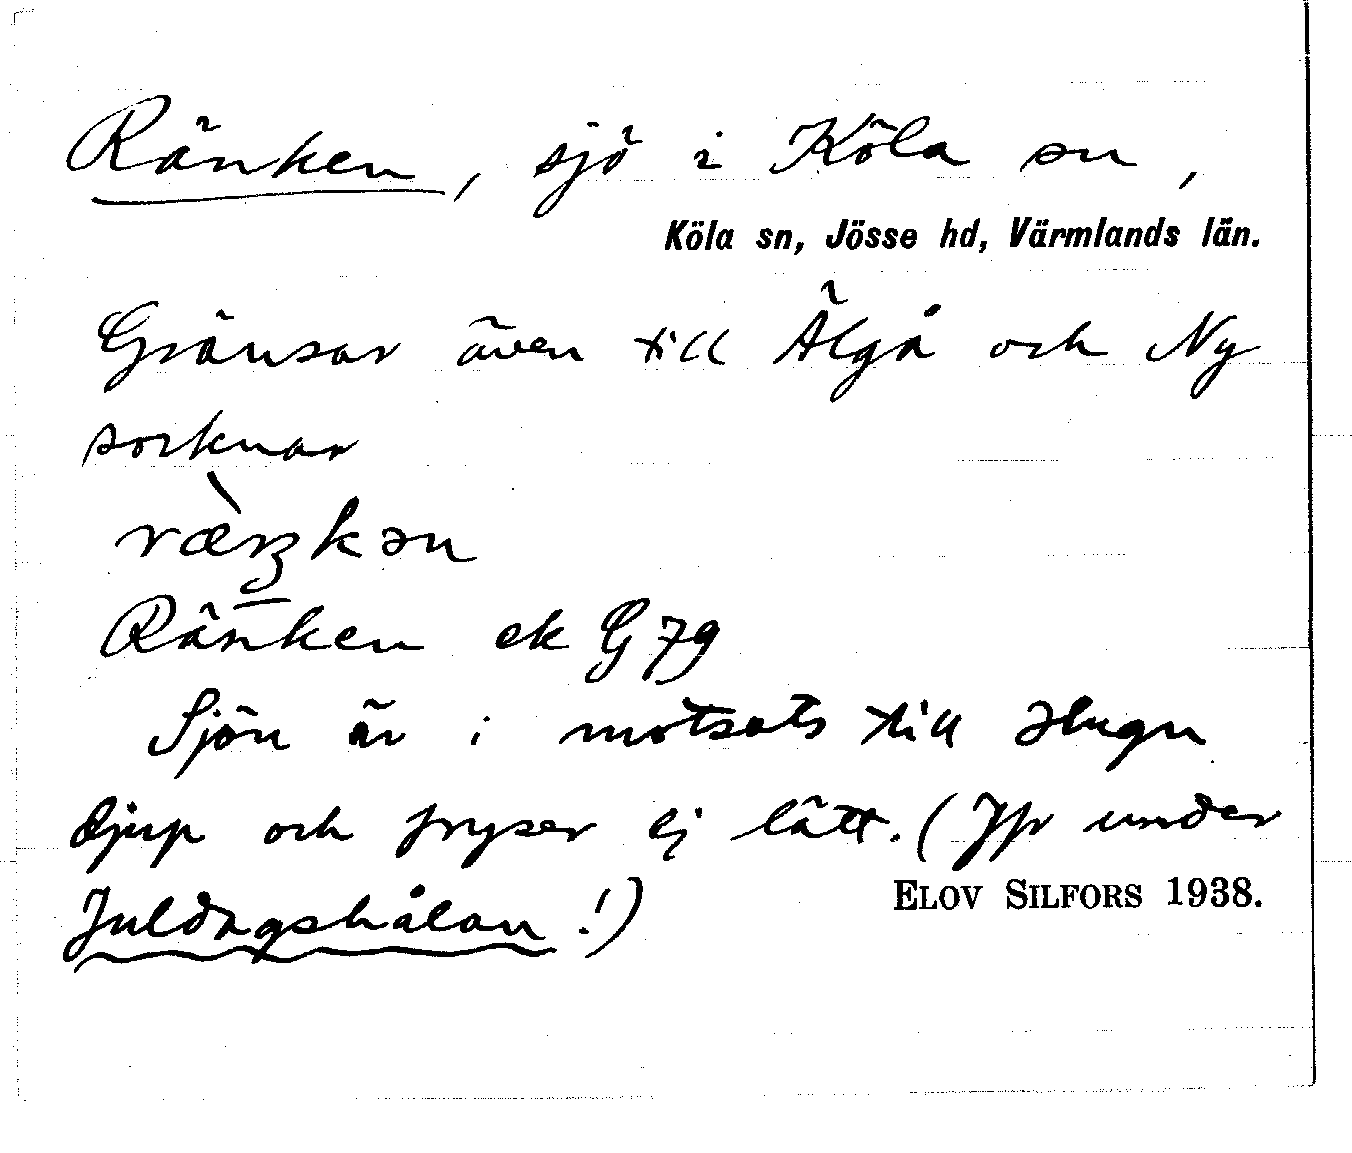 Ränken, sjö i Köla sn,
Köla sn, Jösse hd, Värmlands län.
Gränsar även till Älgå och Ny
socknar
Ränken ek G 79
Sjön är i motsats till Hugn
djup och fryser ej lätt. (Jfr under
ELOV SILFORS 1938.
Juldagshålan!)